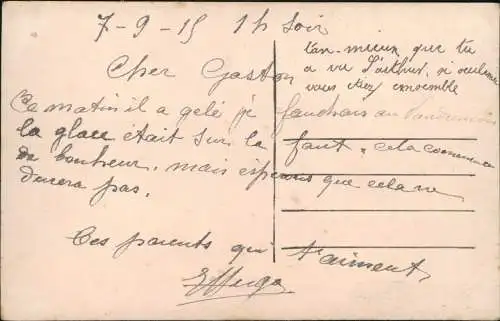 7-9-15 1h Soir
tan-mieux que tu
a vu l'arthur, si seulement
vous étiez ensemble
Cher Gaston
Ce matin il a gelé je fauchais au
la glace était sur la faut, cela commence
de bonheur, mais espérons que cela ne
durera pas.
Tes parents qui t'aiment